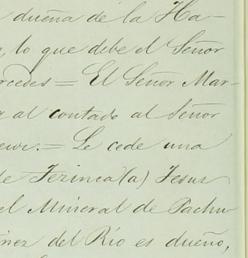 dueña de la Ha-
, lo que debe el Señor
rcedes = El Señor Mar-
al contado al Señor
= Le cede una
de Terinca (a) Jesus
el Mineral de Pachu
inez del Río es dueño,